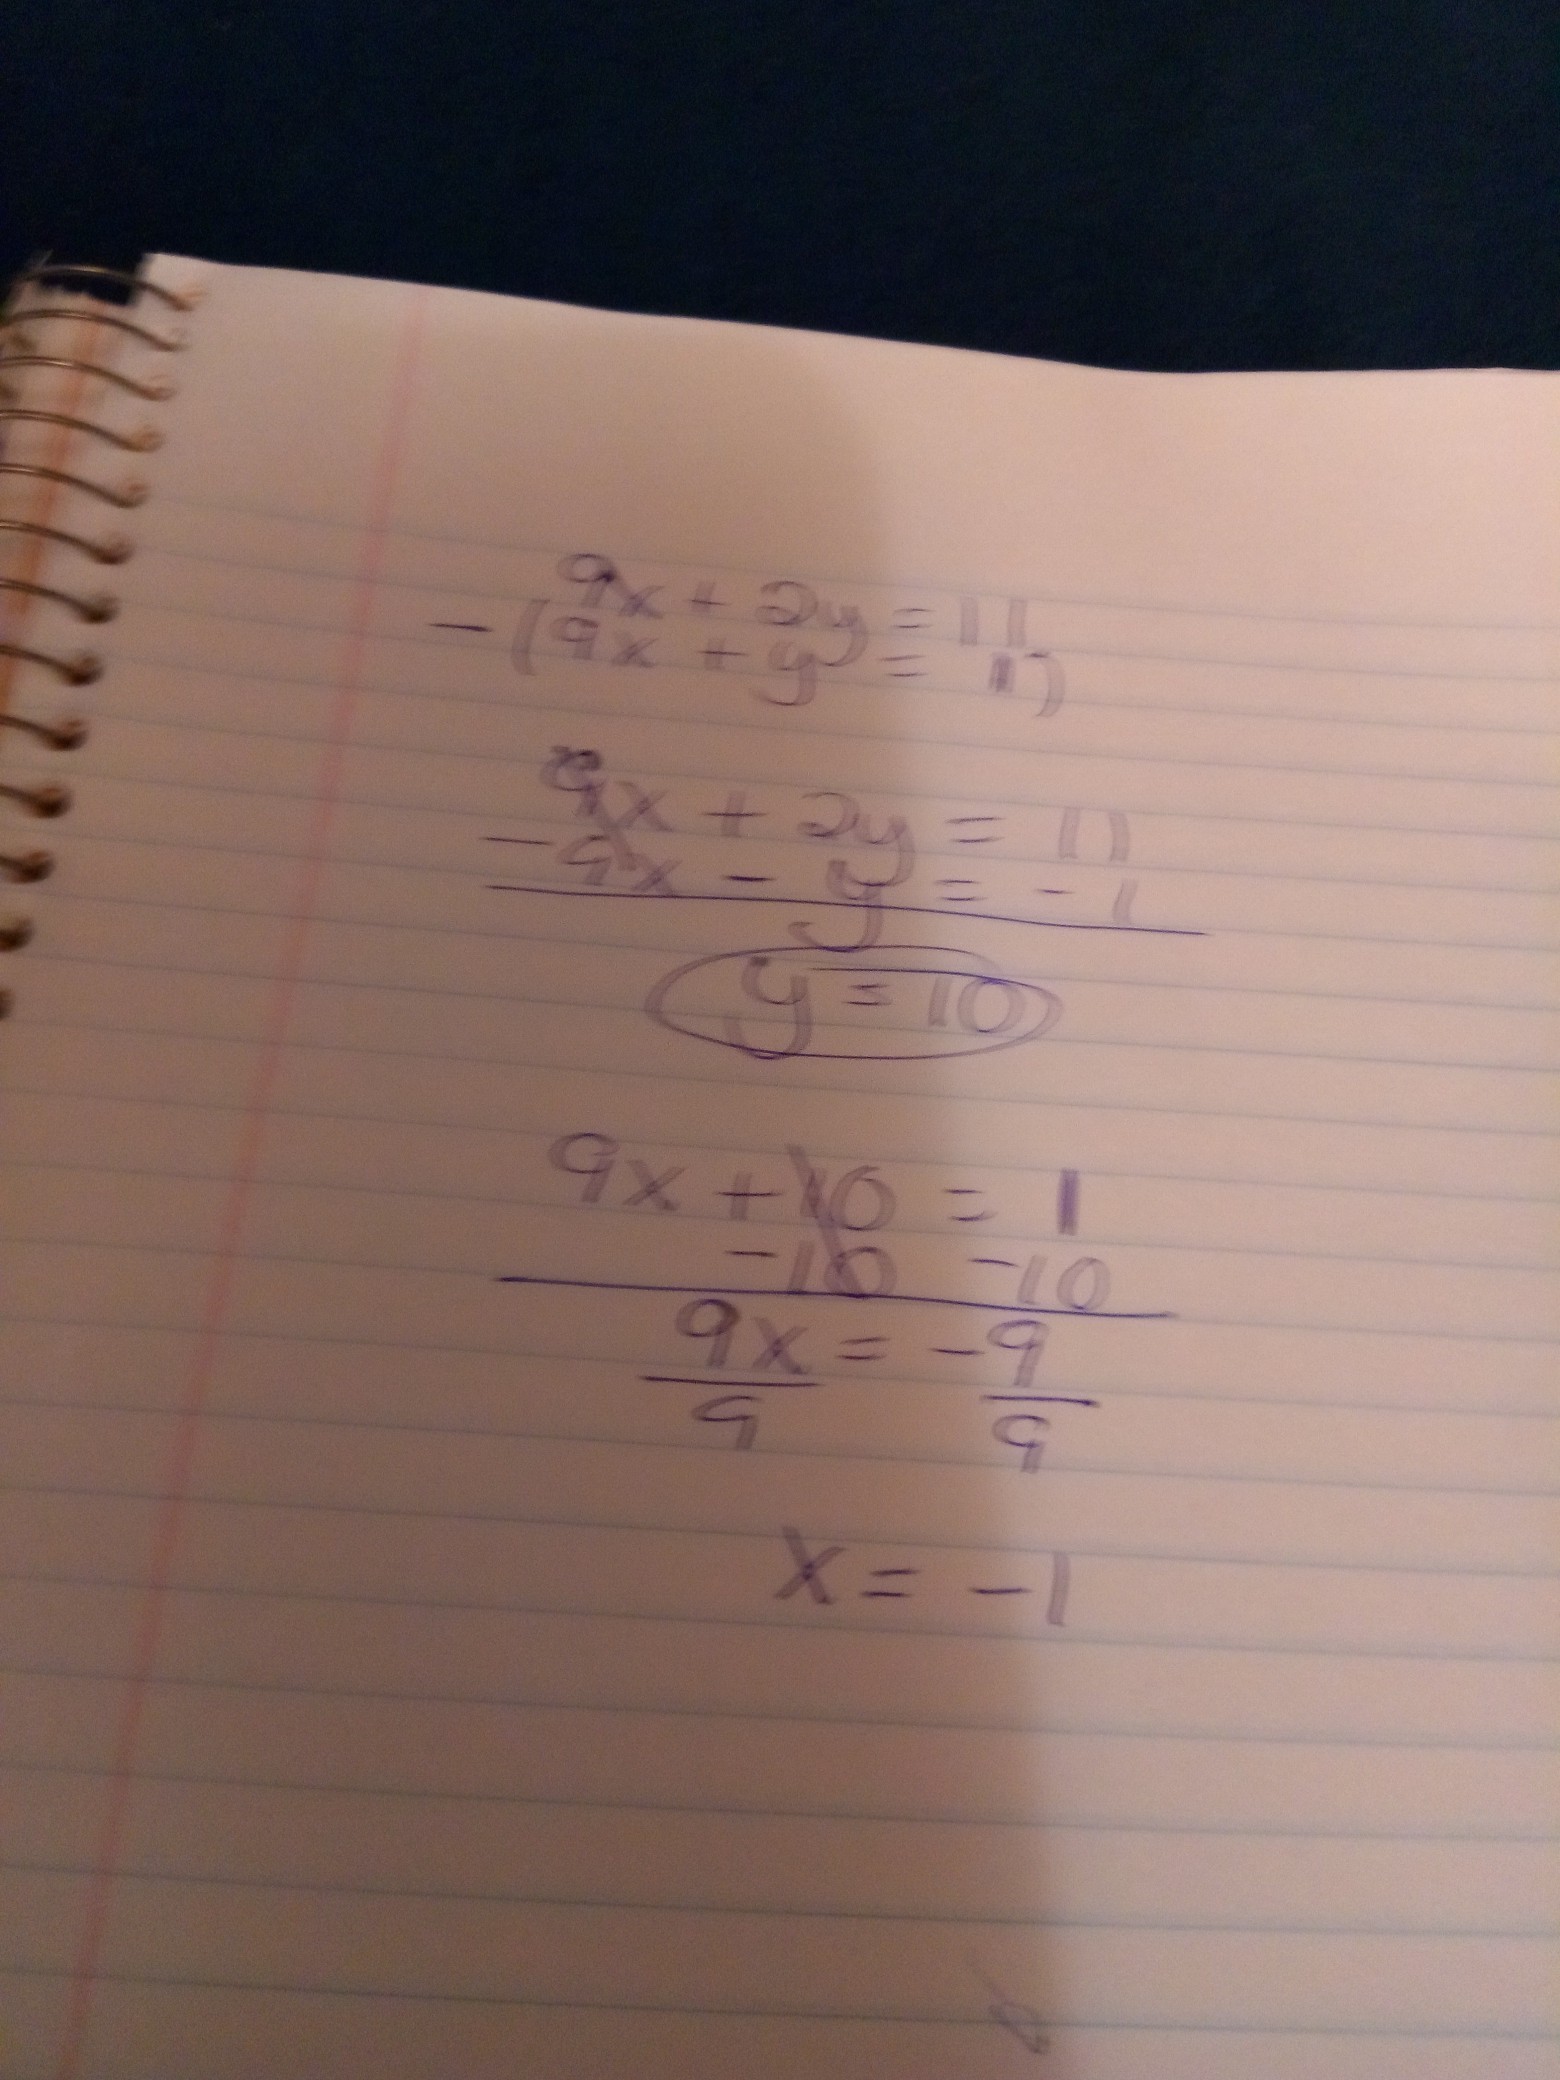 9x + 2y = 11
- (9x + y = 1)
9x + 2y = 11
- 9x - y = - 1
y = 10
9x + 10 = 1
- 10 - 10
9x = - 9
9 9
x = - 1